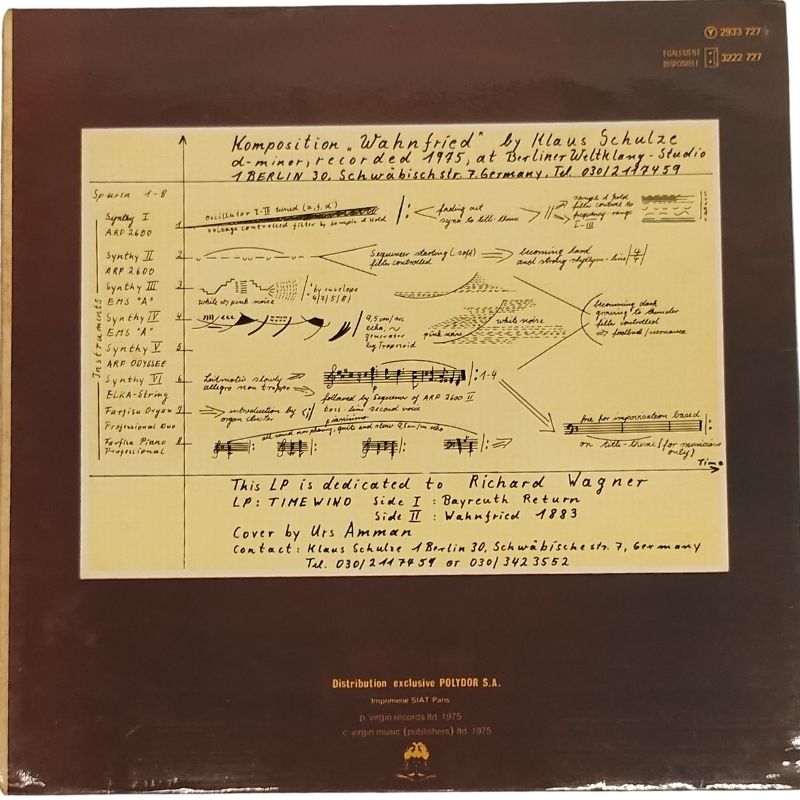 Y 2933 727
EGALEMENT DISPONIBLE 3222 727
Komposition „Wahnfried" by Klaus Schulze
d-minor, recorded 1975, at Berliner Weltklang-Studio
1 BERLIN 30, Schwäbischstr. 7, Germany, Tel. 030/2117459
Spuren 1-8
Instruments
Synthy I 1
ARP 2600
oscillator I-III tuned (a, f, d)
voltage controlled filter by sample & hold
fading out
sync to title-theme
sample & hold
filter control to
frequency-range
I-III
Synthy II 2
ARP 2600
Sequencer starting (soft)
filter controlled
becoming hard
and strong rhythm-line 4/4
Synthy III 3
EMS "A"
white + pink noise
by envelope
4/3/5/8/
Synthy IV 4
EMS "A"
9,5 cm/sec
echo, ~
generator
by Trapezoid
pink noise
white noise
becoming dark
growing to thunder
filter controlled
feedback/resonance
Synthy V 5
ARP ODYSSEE
Synthy VI 6
ELKA-String
Leitmotiv slowly
allegro non troppo
1-4
followed by Sequencer of ARP 2600 II
Farfisa Organ 7
Professional Duo
introduction by
organ cluster
bass-line second voice
pianissimo
free for improvisation based
on title-theme (for musicians
only)
Farfisa Piano 8
Professional
all sound now phasing, quite and slow 9,5 cm/sec echo
Time
This LP is dedicated to Richard Wagner
LP: TIMEWIND Side I : Bayreuth Return
Side II : Wahnfried 1883
Cover by Urs Amman
Contact: Klaus Schulze 1 Berlin 30, Schwäbischestr. 7, Germany
Tel. 030/2117459 or 030/3423552
Distribution exclusive POLYDOR S.A.
Imprimerie SIAT Paris
p. virgin records ltd. 1975
c. virgin music (publishers) ltd. 1975